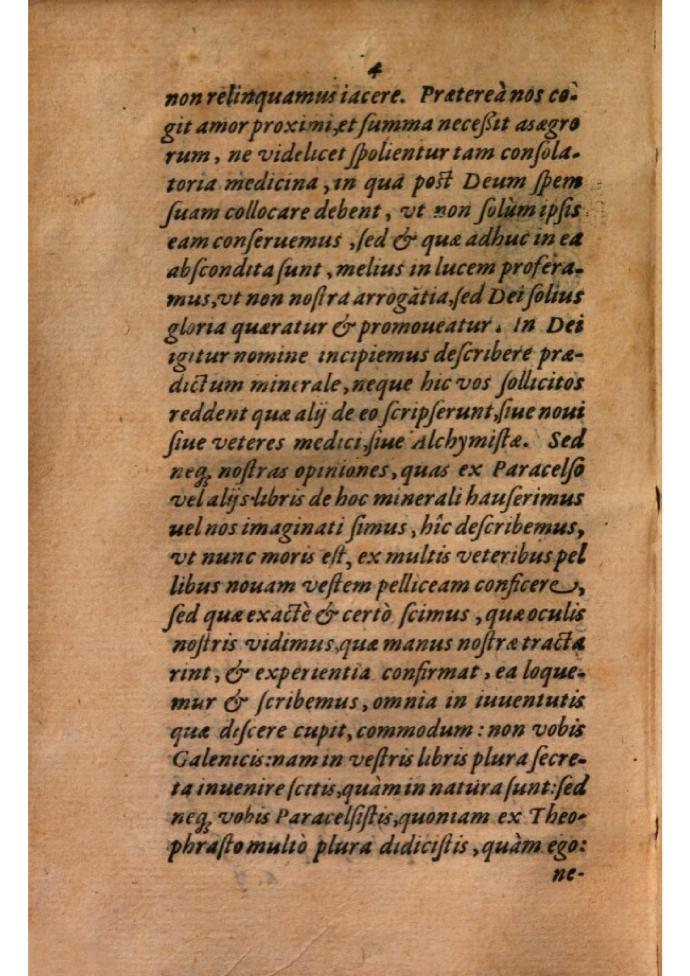 4
non relinquamus iacere. Prætereà nos co-
git amor proximi,et ſumma neceßit as ægro
rum, ne videlicet ſpolientur tam conſola-
toria medicina, in qua poſt Deum ſpem
ſuam collocare debent, vt non ſolùm ipſis
eam conſeruemus, ſed & quæ adhuc in ea
abſcondita ſunt, melius in lucem profera-
mus,vt non noſtra arrogãtia,ſed Dei ſolius
gloria quæratur & promoueatur. In Dei
igitur nomine incipiemus deſcribere præ-
dictum minerale, neque hic vos ſollicitos
reddent quæ alij de eo ſcripſerunt,ſiue noui
ſiue veteres medici,ſiue Alchymiſtæ. Sed
neq; noſtras opiniones, quas ex Paracelſo
vel alijs libris de hoc minerali hauſerimus
uel nos imaginati ſimus, hîc deſcribemus,
vt nunc moris eſt, ex multis veteribus pel
libus nouam veſtem pelliceam conficere,
ſed quæ exactè & certò ſcimus, quæ oculis
noſtris vidimus,quæ manus noſtræ tracta
rint, & experientia confirmat, ea loque-
mur & ſcribemus, omnia in iuuentutis
quæ diſcere cupit, commodum: non vobis
Galenicis:nam in veſtris libris plura ſecre-
ta inuenire ſcitis,quàm in natura ſunt:ſed
neq; vobis Paracelſiſtis,quoniam ex Theo-
phraſto multò plura didiciſtis, quàm ego:
ne-